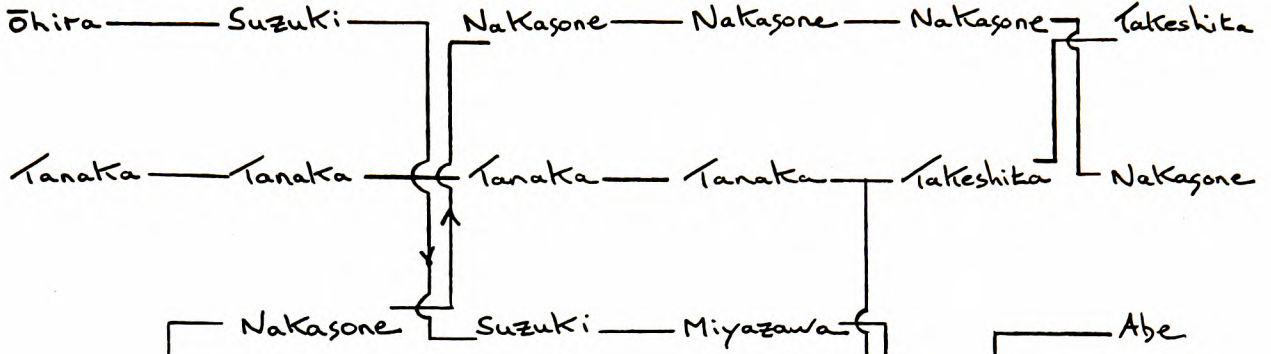 Ōhira Suzuki Nakasone Nakasone Nakasone Takeshita
Tanaka Tanaka Tanaka Tanaka Takeshita Nakasone
Nakasone Suzuki Miyazawa Abe